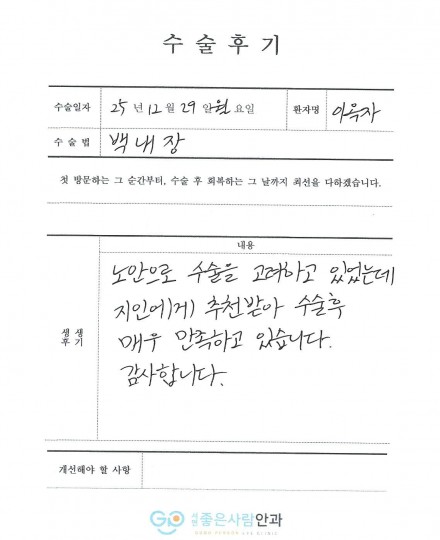 수술후기
수술일자 25 년 12 월 29 일 월 요일 환자명 이옥자
수 술 법 백내장
첫 방문하는 그 순간부터, 수술 후 회복하는 그 날까지 최선을 다하겠습니다.
내용
생 생
후 기
노안으로 수술을 고려하고 있었는데
지인에게 추천받아 수술후
매우 만족하고 있습니다.
감사합니다.
개선해야 할 사항
서면 좋은사람안과
GOOD PERSON EYE CLINIC